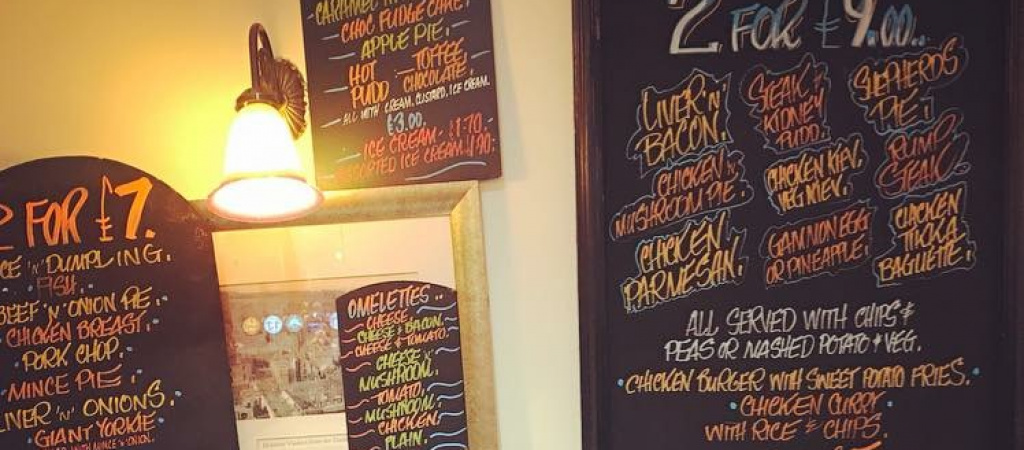 2 FOR £7.
CE 'N' DUMPLING.
FISH.
BEEF 'N' ONION PIE.
CHICKEN BREAST.
PORK CHOP.
MINCE PIE.
LIVER 'N' ONIONS.
GIANT YORKIE
WITH MINCE 'N' ONION.
CARAMEL
CHOC FUDGE CAKE.
APPLE PIE.
HOT TOFFEE
PUDD CHOCOLATE.
ALL WITH CREAM, CUSTARD, ICE CREAM.
£3.00.
ICE CREAM - £1.70.
ICE CREAM
OMELETTES..
CHEESE.
CHEESE & BACON.
CHEESE & TOMATO.
CHEESE
MUSHROOM.
TOMATO.
MUSHROOM.
CHICKEN.
PLAIN.
2 FOR £9.00..
LIVER 'N'
BACON.
STEAK &
KIDNEY
PUDD.
SHEPHERDS
PIE.
CHICKEN &
MUSHROOM PIE.
CHICKEN KIEV.
VEG KIEV.
RUMP
STEAK.
CHICKEN
PARMESAN.
GAMMON EGG
OR PINEAPPLE.
CHICKEN
TIKKA
BAGUETTE.
ALL SERVED WITH CHIPS &
PEAS OR MASHED POTATO & VEG.
CHICKEN BURGER WITH SWEET POTATO FRIES.
CHICKEN CURRY
WITH RICE & CHIPS.